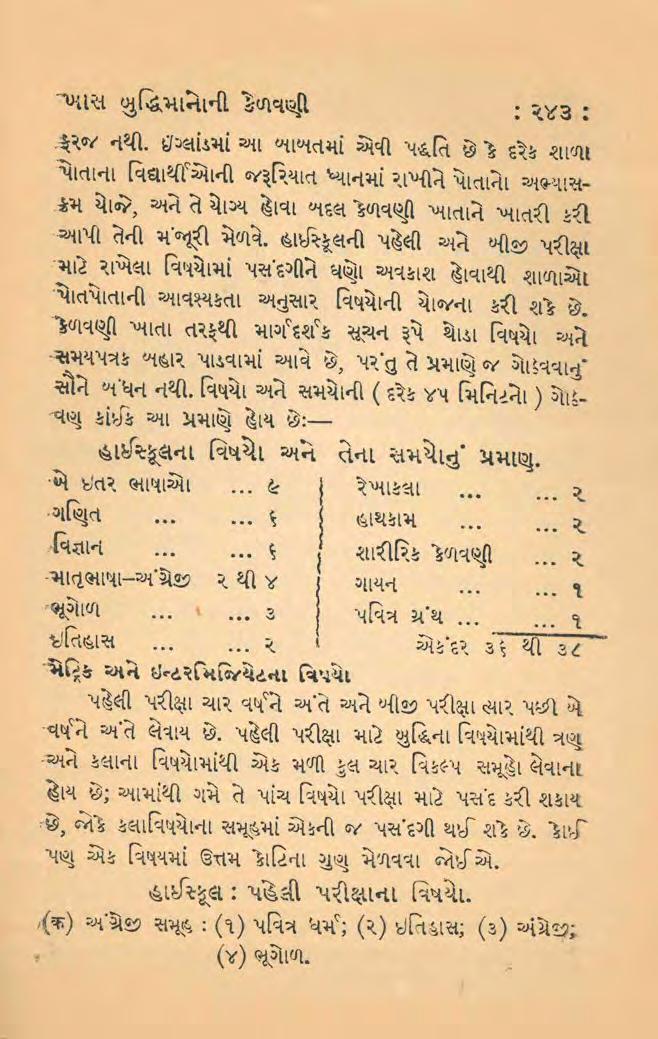 ખાસ બુદ્ધિમાનોની કેળવણી : ૨૪૩ :
ફરજ નથી. ઇંગ્લાંડમાં આ બાબતમાં એવી પદ્ધતિ છે કે દરેક શાળા
પોતાના વિદ્યાર્થીઓની જરૂરિયાત ધ્યાનમાં રાખીને પોતાનો અભ્યાસ-
ક્રમ યોજે, અને તે યોગ્ય હોવા બદલ કેળવણી ખાતાને ખાતરી કરી
આપી તેની મંજૂરી મેળવે. હાઈસ્કૂલની પહેલી અને બીજી પરીક્ષા
માટે રાખેલા વિષયોમાં પસંદગીને ઘણો અવકાશ હોવાથી શાળાઓ
પોતપોતાની આવશ્યકતા અનુસાર વિષયોની યોજના કરી શકે છે.
કેળવણી ખાતા તરફથી માર્ગદર્શક સૂચન રૂપે થોડા વિષયો અને
સમયપત્રક બહાર પાડવામાં આવે છે, પરંતુ તે પ્રમાણે જ ગોઠવવાનું
સૌને બંધન નથી. વિષયો અને સમયોની ( દરેક ૪૫ મિનિટનો ) ગોઠ-
વણ કાંઈક આ પ્રમાણે હોય છેઃ—
હાઈસ્કૂલના વિષયો અને તેના સમયોનું પ્રમાણ.
બે ઇતર ભાષાઓ ... ૯
ગણિત ... ... ૬
વિજ્ઞાન ... ... ૬
માતૃભાષા–અંગ્રેજી ૨ થી ૪
ભૂગોળ ... ... ૩
ઇતિહાસ ... ... ૨
રેખાકલા ... ... ૨
હાથકામ ... ... ૨
શારીરિક કેળવણી ... ૨
ગાયન ... ... ૧
પવિત્ર ગ્રંથ ... ... ૧
એકંદર ૩૬ થી ૩૮
મેટ્રિક અને ઇન્ટરમિજિયેટના વિષયો
પહેલી પરીક્ષા ચાર વર્ષને અંતે અને બીજી પરીક્ષા ત્યાર પછી બે
વર્ષને અંતે લેવાય છે. પહેલી પરીક્ષા માટે બુદ્ધિના વિષયોમાંથી ત્રણ
અને કલાના વિષયોમાંથી એક મળી કુલ ચાર વિકલ્પ સમૂહો લેવાના
હોય છે; આમાંથી ગમે તે પાંચ વિષયો પરીક્ષા માટે પસંદ કરી શકાય
છે, જોકે કલાવિષયોના સમૂહમાં એકની જ પસંદગી થઈ શકે છે. કોઈ
પણ એક વિષયમાં ઉત્તમ કોટિના ગુણ મેળવવા જોઈએ.
હાઈસ્કૂલ : પહેલી પરીક્ષાના વિષયો.
(ક) અંગ્રેજી સમૂહ : (૧) પવિત્ર ધર્મ; (૨) ઇતિહાસ; (૩) અંગ્રેજી;
(૪) ભૂગોળ.